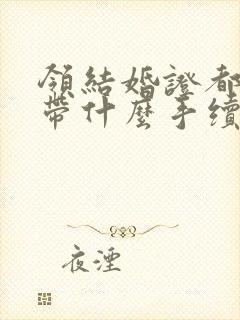 領結婚證都
帶什麼手續
夜湮